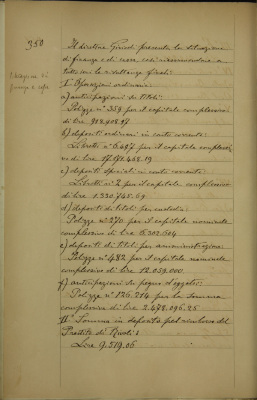 350
Il direttore Giusti presenta la situazione
Situazione di
finanza e cassa
di finanza e di cassa così riassumendone a
tutt'oggi le risultanze finali:
I° Operazioni ordinarie:
a) anticipazioni su titoli:
Polizze n° 359 per il capitale complessivo
di lire 918.408.97
b) depositi ordinari in conto corrente:
Libretti n° 6.497 per il capitale complessi-
vo di lire 17.171.468.19
c) depositi speciali in conto corrente:
Libretti n° 2 per il capitale complessivo
di lire 1.330.745.69
d) depositi di titoli per custodia:
Polizze n° 270 per il capitale nominale
complessivo di lire 6.302.604
e) depositi di titoli per amministrazione:
Polizze n° 482 per il capitale nominale
complessivo di lire 12.059.000
f) anticipazioni su pegno d'oggetti:
Polizze n° 126.214 per la somma
complessiva di lire 2.478.096.25
II° Somma in deposito pel rimborso del
Prestito di Rivoli:
Lire 9.519.06